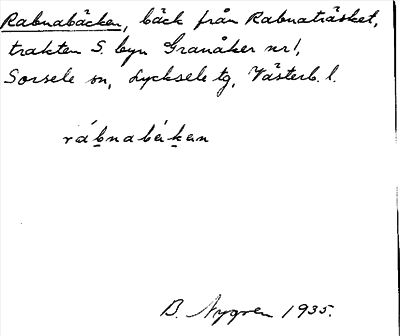 Rabnabäcken, bäck från Rabnaträsket,
trakten S. byn Granåker nr 1,
Sorsele sn, Lycksele tg, Västerb. l.
rábnabákan
B. Nygren 1935.